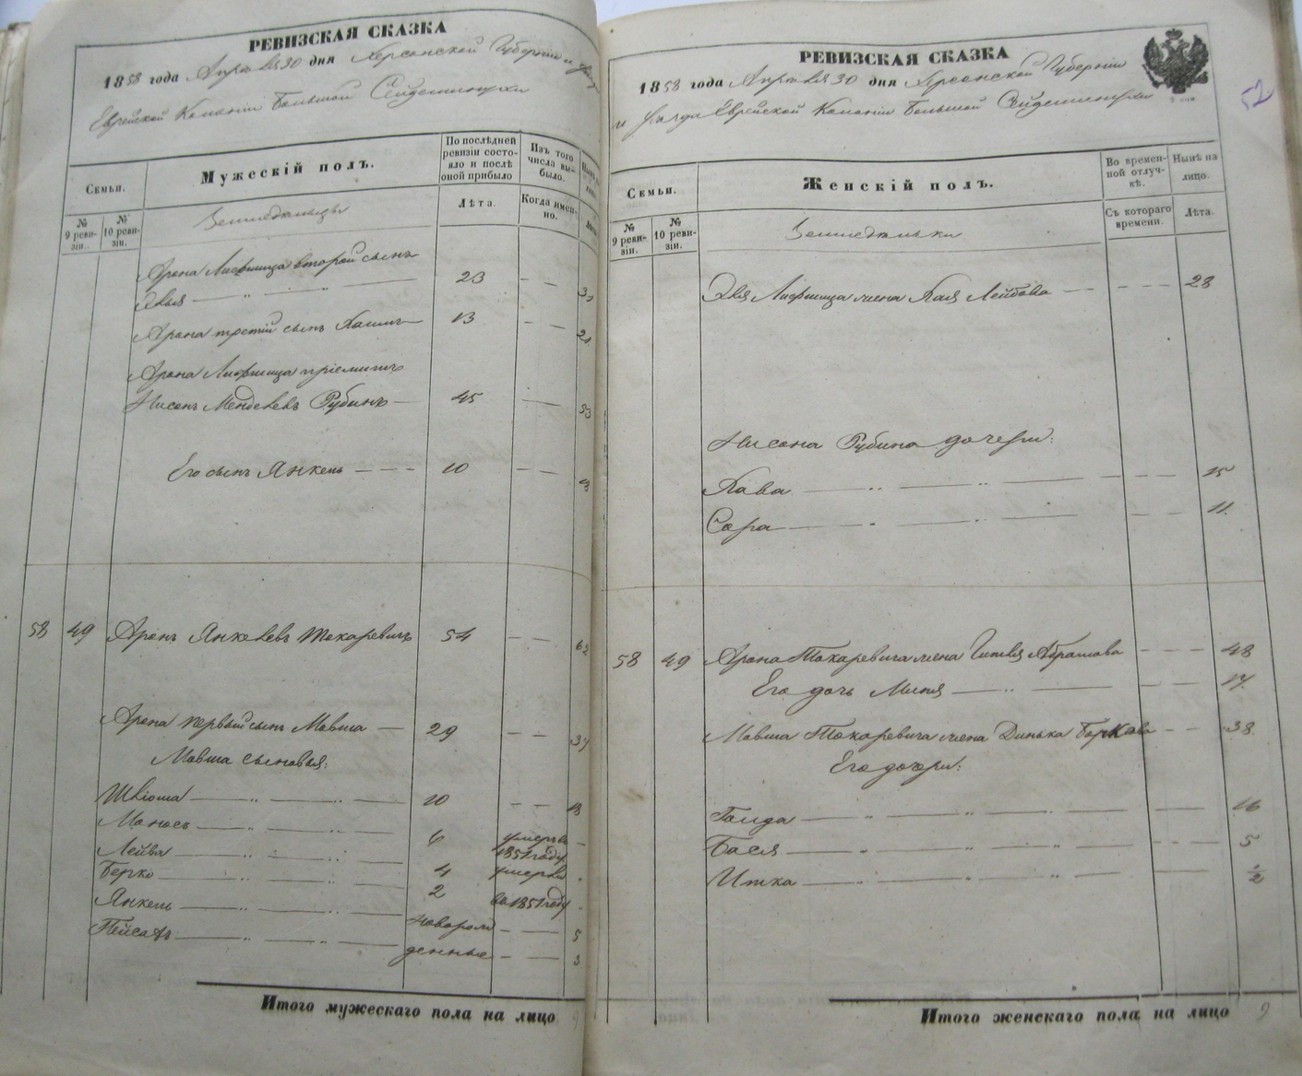 РЕВИЗСКАЯ СКАЗКА
1858 года Апреля 30 дня Херсонской Губернии и
Еврейской Колонии Большой Сейдеминухи
Семьи.
Мужескій полъ.
По послѣдней ревизіи состояло и послѣ оной прибыло
Изъ того числа выбыло.
№ 9 ревизіи.
№ 10 ревизіи.
Земледѣльцы
Лѣта.
Когда именно.
Арона Лифшица второй сынъ
Элья — „ „ — 23 — —
Арона третій сынъ Хаимъ 13 — — 21
Арона Лифшица пріемышъ
Нисонъ Менделевъ Рубинъ — 45 — — 53
Его сынъ Янкель — — — 10 — —
58 49 Аронъ Янкелевъ Токаревичъ 54 — — 62
Арона первый сынъ Мовша — 29 — — 37
Мовша сыновья:
Шліома — „ — „ — 10 — — 18
Манось — „ — „ — 6 умеръ въ —
Лейба — „ — „ — 1851 году
Берко — „ — „ — 4 умеръ
Янкель — „ — „ — 2 въ 1851 году
Пейсахъ — „ — „ — новорож — — 5
денные — — 3
Итого мужескаго пола на лицо 9
РЕВИЗСКАЯ СКАЗКА
1858 года Апреля 30 дня Херсонской Губерніи
и уезда Еврейской Колоніи Большой Сейдеминухи
52
Семьи.
Женскій полъ.
Во временной отлучкѣ.
Нынѣ на лицо.
№ 9 ревизіи.
№ 10 ревизіи.
Земледѣльки
Съ котораго времени.
Лѣта.
Элья Лифшица жена Хая Лейбова — — — — 28
Нисона Рубина дочери:
Хава — „ — „ — — — 15
Сора — „ — „ — — — 11
58 49 Арона Токаревича жена Гитля Абрамова — — — 48
Его дочь Миня — „ — — — 17
Мовша Токаревича жена Динька Боркова — — — 38
Его дочери:
Голда — „ — „ — — — 16
Бася — „ — „ — — — 5
Итка — „ — „ — — — ½
Итого женскаго пола на лицо 9